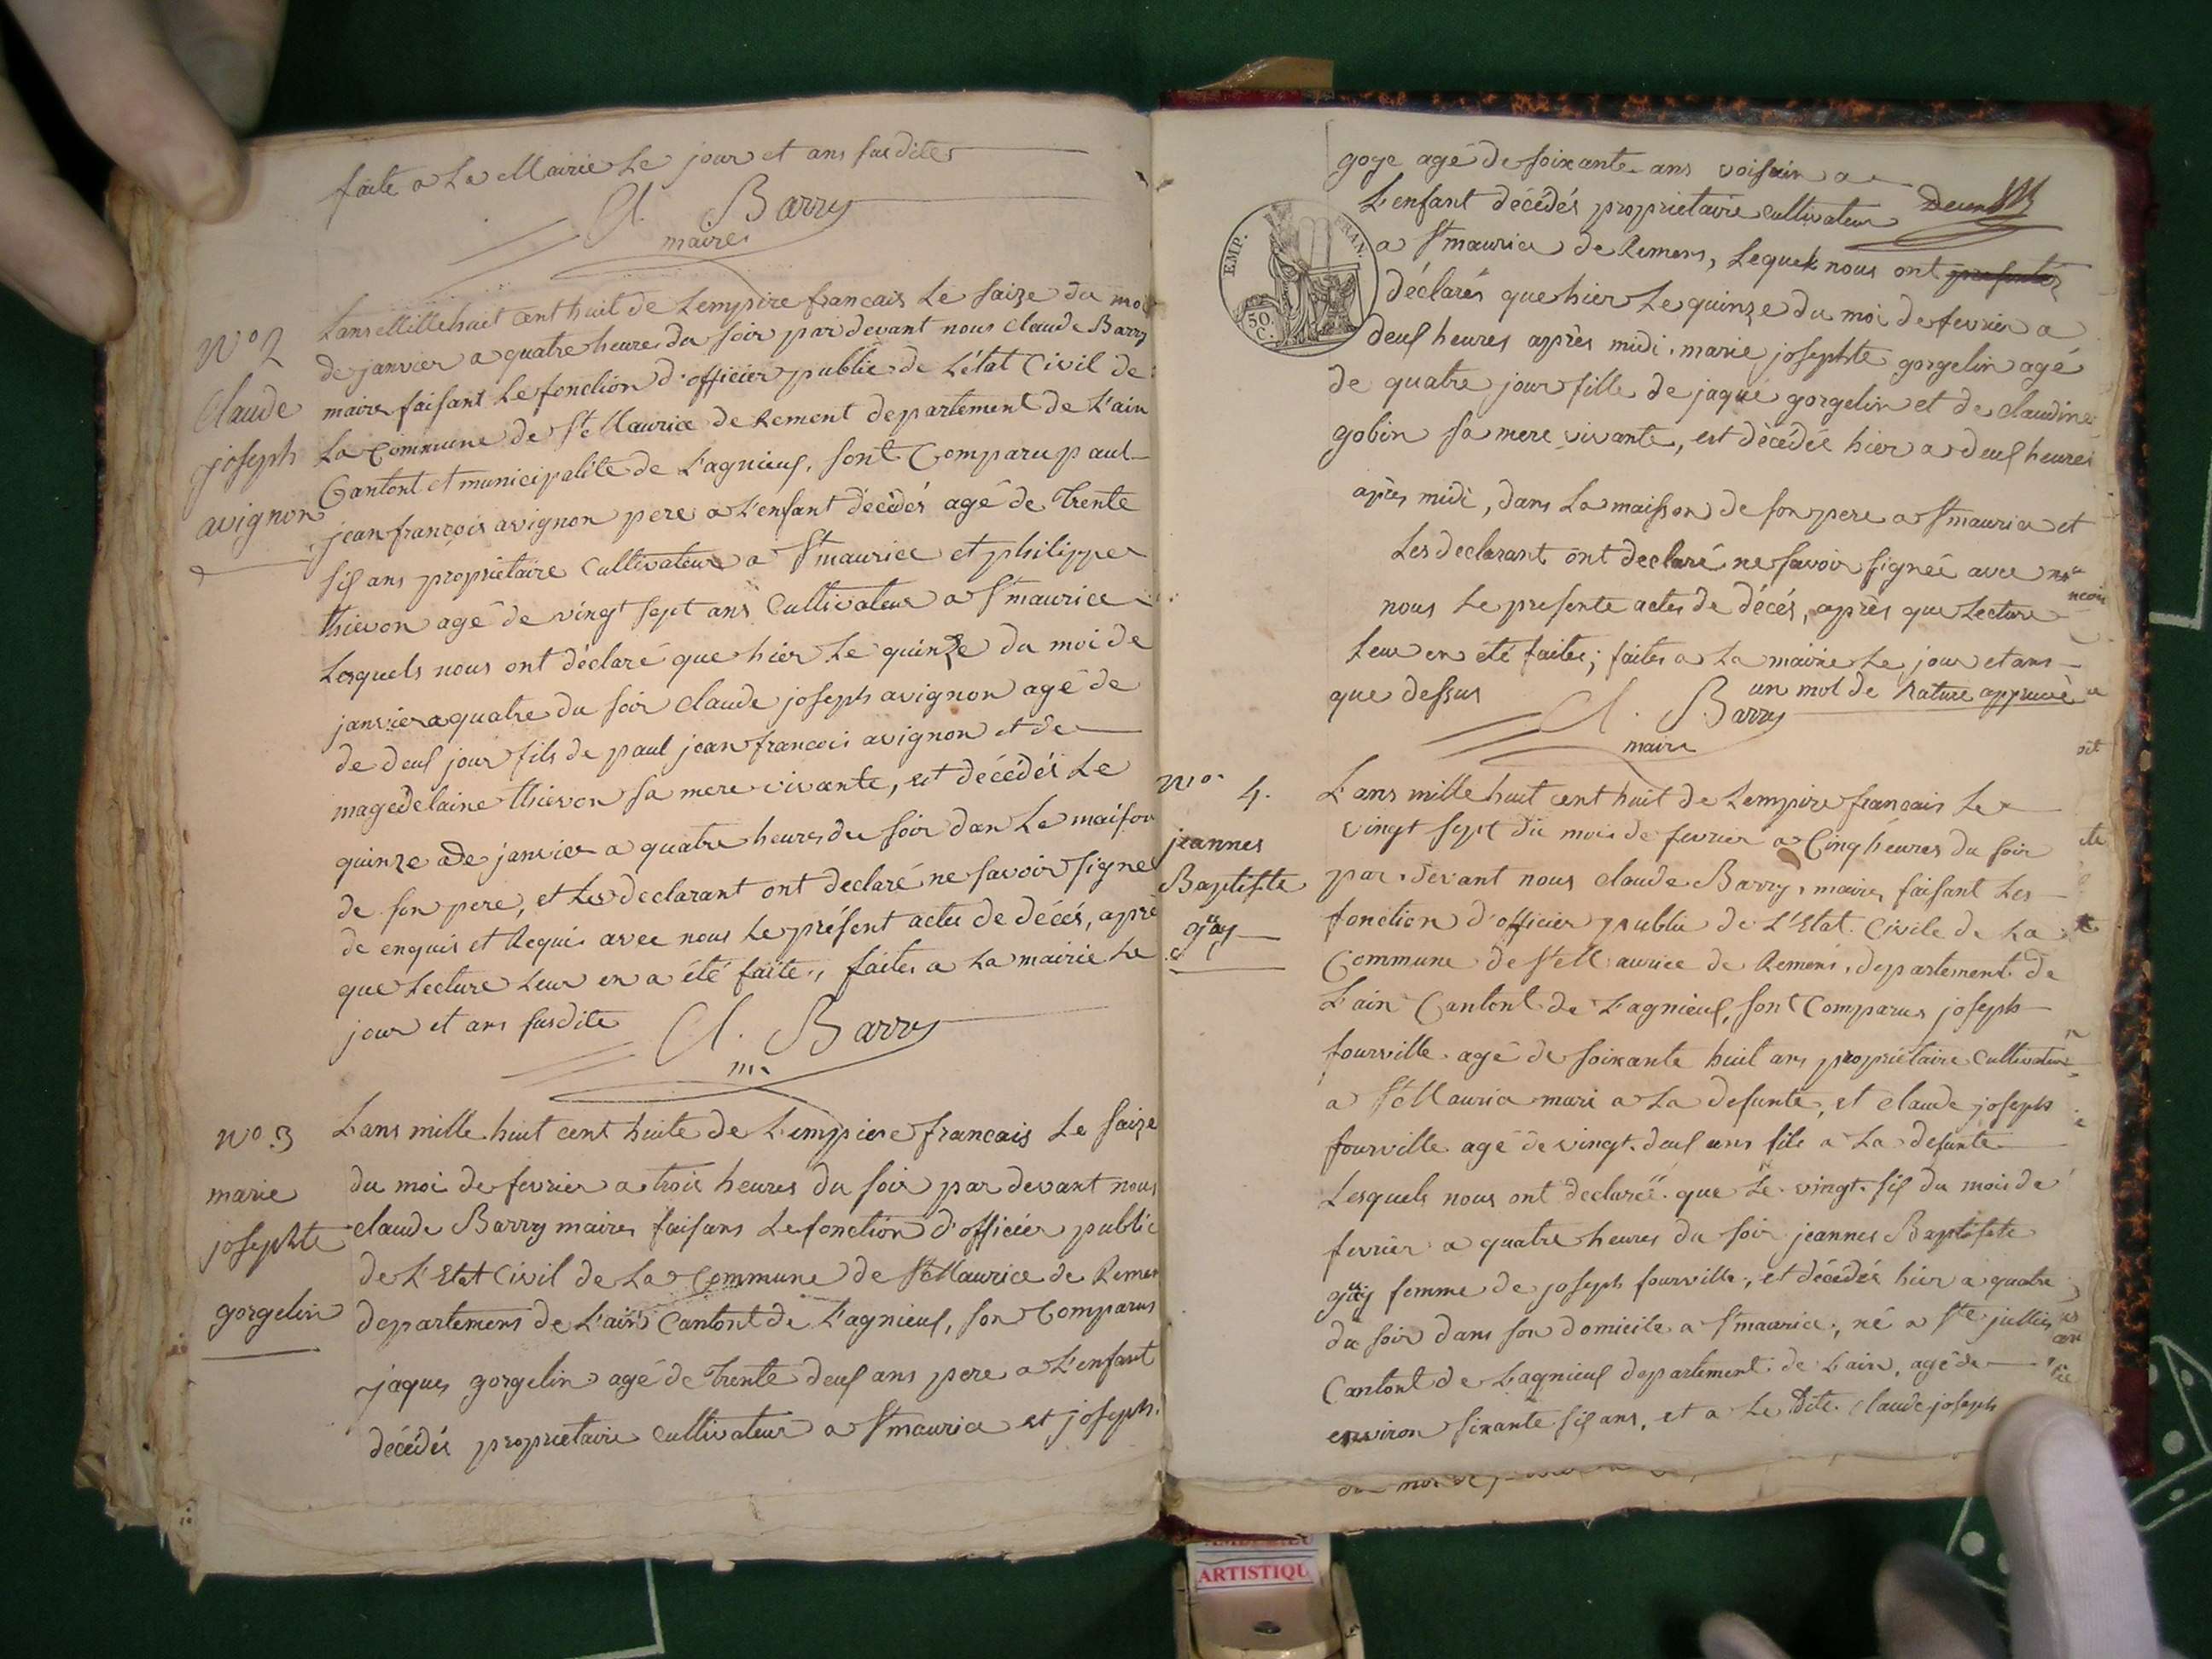 faite a La Mairie Le jour et ans susdites
Cl. Barry
maire
N° 2
Claude
joseph
avignon
Lans Mille huit cent huit de Lempire francais Le saize du moi
de janvier a quatre heures du soir par devant nous claude Barry
maire faisant Le fonction d'officier public de L'état Civil de
La Commune de St Maurice de Rement departement de L'ain
Cantont et municipalité de L'agnieuf, sont Comparu paul
jean françois avignon pere a L'enfant décédés agé de Trente
sis ans propriétaire Cultivateur a St maurice et philippe
thievon agé de vingt sept ans Cultivateur a St maurice
Lesquels nous ont déclaré que hier Le quinze du moi de
janvier a quatre du soir claude joseph avignon agé de
de deus jour fils de paul jean francois avignon et de
magedelaine thievon sa mere vivante, est décédés Le
quinze de janvier a quatre heures du soir dan La maison
de son pere, et Les declarant ont declaré ne savoir signe
de enquis et Requi avec nous Le présent actes de décés, aprè
que Lecture Leur en a été faite, faites a La mairie Le
jour et ans susdite Cl. Barry
m.
N° 3
marie
josephte
gorgelin
L'ans mille huit cent huite de L'empiere francais Le saize
du moi de fevrier a trois heures du soir par devant nous
claude Barry maires faisans Le fonction d'officier public
de L'Etat Civil de La Commune de St Maurice de Remen
departement de L'ain Cantont de L'agnieus, son Comparus
jaques gorgelin agé de Trente deus ans pere a L'enfant
décédés proprietaire cultivateur a St maurice et joseph
goge agé de soixante ans voisin a
L'enfant décédés proprietaire Cultivateur
a St maurice de Remens, Lequel nous ont presenté
déclarés que hier Le quinze du moi de fevrier a
EMP. FRAN.
50 C.
deus heures après midi, marie josephte gorgelin agé
de quatre jour fille de jaque gorgelin et de claudine
gobin sa mere vivante, est décédée hier a deus heures
après midi, dans La maisson de son pere a St maurice et
Les declarant ont declaré ne savoir signée avec
nous Le presente actes de décés, après que Lecture
Leur en été faites; faites a La mairie Le jour et ans
que dessus un mot de Rature approuvé
Cl. Barry
maire
N° 4.
jeannes
Baptiste
gay
L'ans mille huit cent huit de Lempire francais Le
vingt sept du mois de fevrier a Cinq heures du soir
par devant nous claude Barry, maire, faisant Les
fonction d'officier public de L'Etat Civile de La
Commune de St Maurice de Remens, departement de
L'ain Cantont de L'agnieus, sont Comparus joseph
fourville agé de soixante huit ans propriétaire Cultivateur
a St Maurice mari a La defunte, et claude joseph
fourville agé de vingt deus ans fils a La defunte
Lesquels nous ont declarée que Le vingt sis du mois de
fevrier a quatre heures du soir jeannes Baptiste
gay femme de joseph fourville, et décédés hier a quatre
du soir dans son domicile a St maurice, né a Ste jullie
Cantont de Lagnieus departement de L'ain, agé de
environ sixante sis ans, et a Le Dite Claude joseph
ARTISTIQU